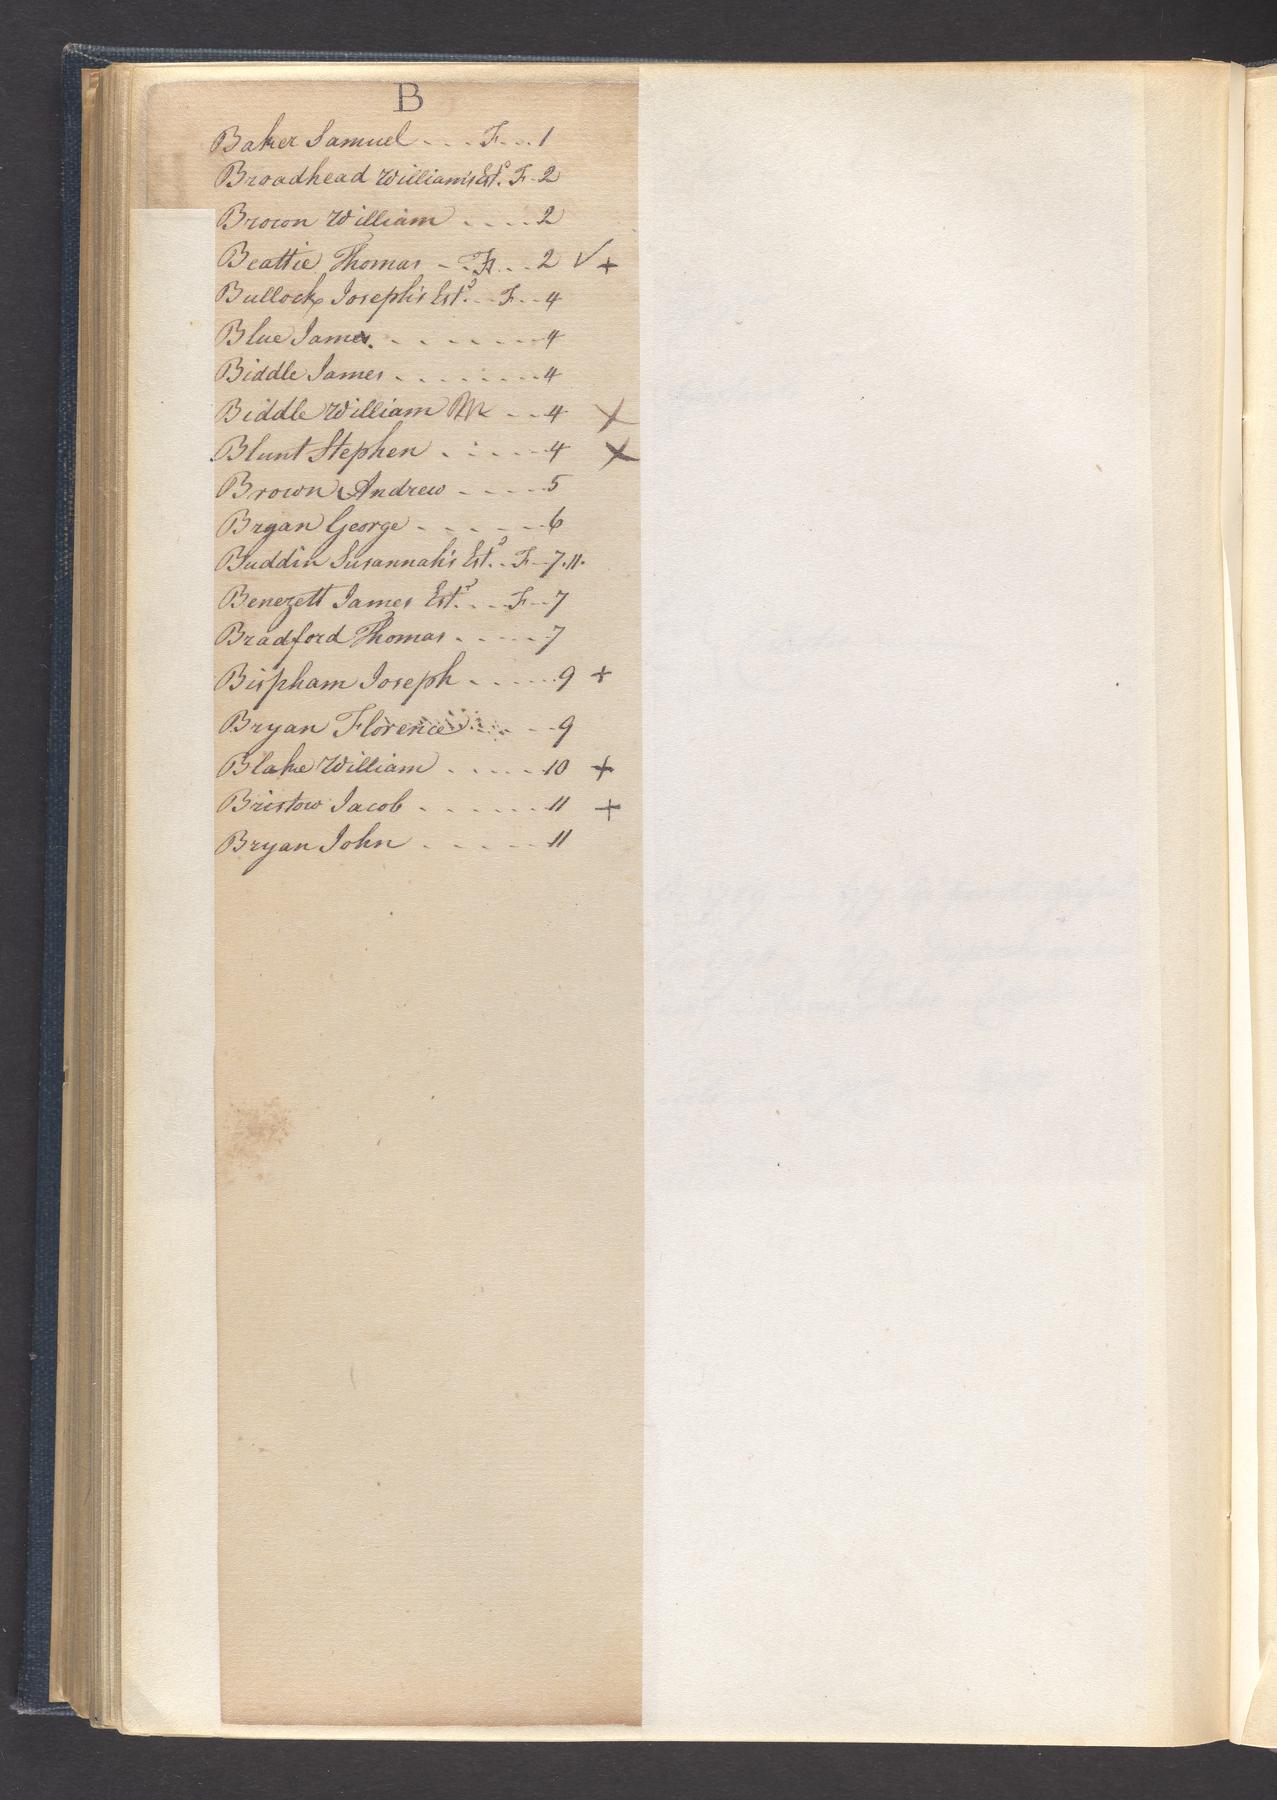 B
Baker Samuel - - - F - - - 1
Broadhead William's Est.e F - 2
Brown William - - - - 2
Beattie Thomas - - F - - - 2 ✓ +
Bullock Joseph's Est.e - F - - 4
Blue James - - - - - - - 4
Biddle James - - - - - - - 4
Biddle William M - - 4 X
Blunt Stephen - - - - - 4 X
Brown Andrew - - - - 5
Bryan George - - - - - - 6
Buddin Susannah's Est.e - F - 7.11.
Benezett James Est.e - - F - - 7
Bradford Thomas - - - - - 7
Bispham Joseph - - - - - 9 +
Bryan Florence - - - 9
Blake William - - - - - 10 +
Bristow Jacob - - - - - - 11 +
Bryan John - - - - - 11